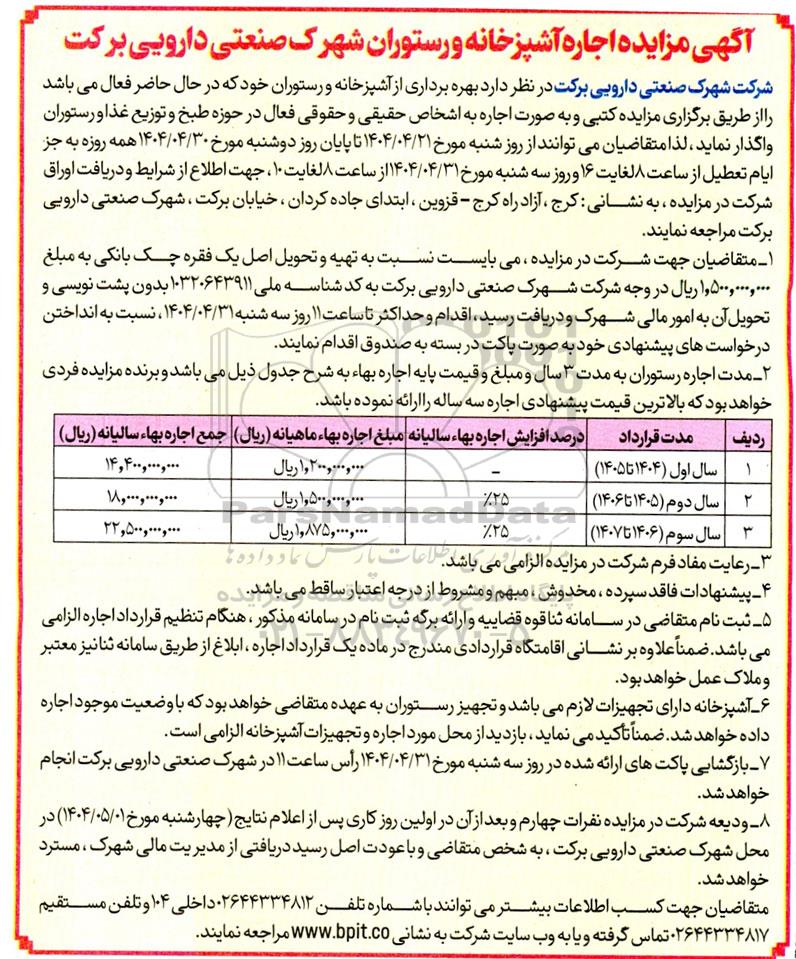 آگهی مزایده اجاره آشپزخانه و رستوران شهرک صنعتی دارویی برکت
شرکت شهرک صنعتی دارویی برکت در نظر دارد بهره برداری از آشپزخانه و رستوران خود که در حال حاضر فعال می باشد
را از طریق برگزاری مزایده کتبی و به صورت اجاره به اشخاص حقیقی و حقوقی فعال در حوزه طبخ و توزیع غذا و رستوران
واگذار نماید، لذا متقاضیان می توانند از روز شنبه مورخ ۱۴۰۴/۰۴/۲۱ تا پایان روز دوشنبه مورخ ۱۴۰۴/۰۴/۳۰ همه روزه به جز
ایام تعطیل از ساعت ۸ لغایت ۱۶ و روز سه شنبه مورخ ۱۴۰۴/۰۴/۳۱ از ساعت ۸ لغایت ۱۰، جهت اطلاع از شرایط و دریافت اوراق
شرکت در مزایده، به نشانی: کرج، آزاد راه کرج – قزوین، ابتدای جاده کردان، خیابان برکت، شهرک صنعتی دارویی
برکت مراجعه نمایند.
۱ـ متقاضیان جهت شرکت در مزایده، می بایست نسبت به تهیه و تحویل اصل یک فقره چک بانکی به مبلغ
۱,۵۰۰,۰۰۰,۰۰۰ ریال در وجه شرکت شهرک صنعتی دارویی برکت به کد شناسه ملی ۱۰۳۲۰۶۴۳۹۱۱ بدون پشت نویسی و
تحویل آن به امور مالی شهرک و دریافت رسید، اقدام و حداکثر تا ساعت ۱۱ روز سه شنبه ۱۴۰۴/۰۴/۳۱، نسبت به انداختن
درخواست های پیشنهادی خود به صورت پاکت در بسته به صندوق اقدام نمایند.
۲ـ مدت اجاره رستوران به مدت ۳ سال و مبلغ و قیمت پایه اجاره بهاء به شرح جدول ذیل می باشد و برنده مزایده فردی
خواهد بود که بالاترین قیمت پیشنهادی اجاره سه ساله را ارائه نموده باشد.
ردیف مدت قرارداد درصد افزایش اجاره بهاء سالیانه مبلغ اجاره بهاء ماهیانه (ریال) جمع اجاره بهاء سالیانه (ریال)
۱ سال اول (۱۴۰۴ تا ۱۴۰۵) – ۱,۲۰۰,۰۰۰,۰۰۰ ریال ۱۴,۴۰۰,۰۰۰,۰۰۰
۲ سال دوم (۱۴۰۵ تا ۱۴۰۶) ٪۲۵ ۱,۵۰۰,۰۰۰,۰۰۰ ریال ۱۸,۰۰۰,۰۰۰,۰۰۰
۳ سال سوم (۱۴۰۶ تا ۱۴۰۷) ٪۲۵ ۱,۸۷۵,۰۰۰,۰۰۰ ریال ۲۲,۵۰۰,۰۰۰,۰۰۰
ParsNamadData
۳ـ رعایت مفاد فرم شرکت در مزایده الزامی می باشد.
۴ـ پیشنهادات فاقد سپرده، مخدوش، مبهم و مشروط از درجه اعتبار ساقط می باشد.
۵ـ ثبت نام متقاضی در سامانه ثنا قوه قضاییه و ارائه برگه ثبت نام در سامانه مذکور، هنگام تنظیم قرارداد اجاره الزامی
۰۲۱-۸۸۳۴۹۶۷۰-۵
می باشد. ضمناً علاوه بر نشانی اقامتگاه قراردادی مندرج در ماده یک قرارداد اجاره، ابلاغ از طریق سامانه ثنا نیز معتبر
و ملاک عمل خواهد بود.
۶ـ آشپزخانه دارای تجهیزات لازم می باشد و تجهیز رستوران به عهده متقاضی خواهد بود که با وضعیت موجود اجاره
داده خواهد شد. ضمناً تأکید می نماید، بازدید از محل مورد اجاره و تجهیزات آشپزخانه الزامی است.
۷ـ بازگشایی پاکت های ارائه شده در روز سه شنبه مورخ ۱۴۰۴/۰۴/۳۱ رأس ساعت ۱۱ در شهرک صنعتی دارویی برکت انجام
خواهد شد.
۸ـ ودیعه شرکت در مزایده نفرات چهارم و بعد از آن در اولین روز کاری پس از اعلام نتایج (چهارشنبه مورخ ۱۴۰۴/۰۵/۰۱) در
محل شهرک صنعتی دارویی برکت، به شخص متقاضی و با عودت اصل رسید دریافتی از مدیریت مالی شهرک، مسترد
خواهد شد.
متقاضیان جهت کسب اطلاعات بیشتر می توانند با شماره تلفن ۰۲۶۴۴۳۳۴۸۱۲ داخلی ۱۰۴ و تلفن مستقیم
۰۲۶۴۴۳۳۴۸۱۷ تماس گرفته و یا به وب سایت شرکت به نشانی www.bpit.co مراجعه نمایند.